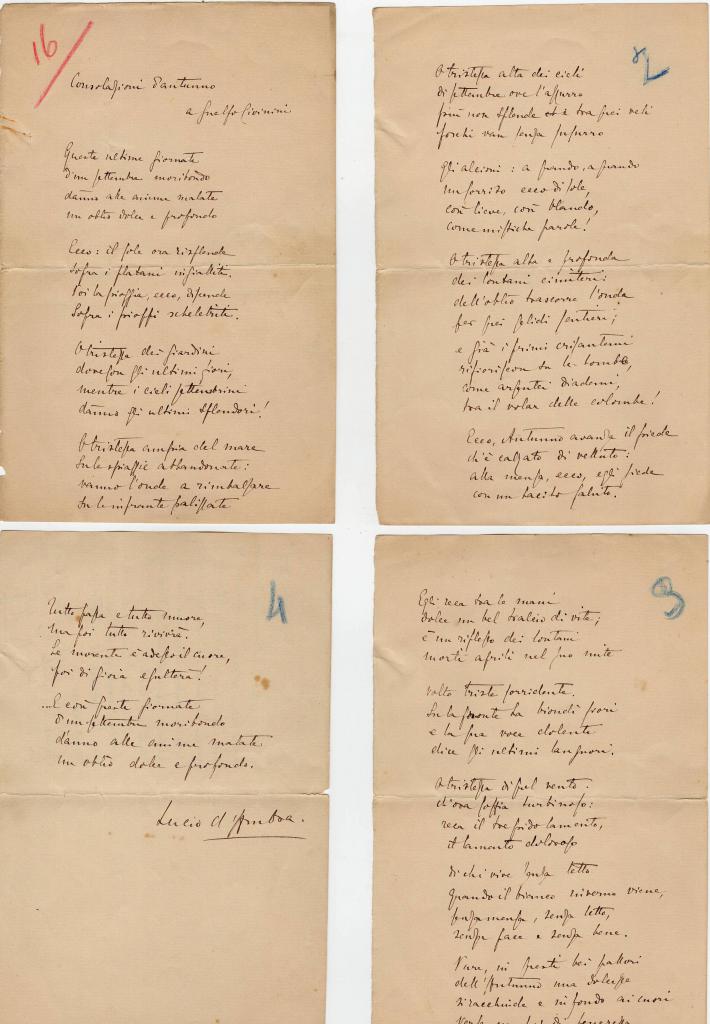 16
Consolazioni d'autunno
a Guelfo Civinini
Queste ultime giornate
d'un settembre moribondo
danno alle anime malate
un oblio dolce e profondo
Ecco: il sole ora risplende
sopra i platani ingialliti.
Poi la pioggia, ecco, discende
sopra i pioppi scheletriti.
O tristezza dei giardini
dove son gli ultimi fiori,
mentre i cieli settembrini
danno gli ultimi splendori!
O tristezza ampia del mare
su le spiaggie abbandonate:
vanno l'onde a rimbalzare
su le infrante palizzate
2
O tristezza alta dei cieli
di settembre ove l'azzurro
più non splende ed è tra quei veli
foschi van senza sussurro
gli alcioni: a quando, a quando
un sorriso ecco di sole,
così lieve, così blando,
come mistiche parole!
O tristezza alta e profonda
dei lontani cimiteri:
dell'oblio trascorre l'onda
per quei gelidi sentieri;
e già i primi crisantemi
rifioriscon su le tombe,
come argentei diademi,
tra il volar delle colombe!
Ecco, Autunno avanza il piede
ch'è calzato di velluto:
alla mensa, ecco, egli siede
con un tacito saluto.
3
Egli reca tra le mani
dolce un bel tralcio di vite;
è un riflesso dei lontani
morti aprili nel suo mite
volto triste sorridente.
Su la fronte ha biondi fiori
e la sua voce dolente
dice gli ultimi languori.
O tristezza di quel vento
ch'ora soffia turbinoso:
reca il trepido lamento,
il lamento doloroso
di chi vive senza tetto
quando il bianco inverno viene,
senza mensa, senza letto,
senza pace e senza bene.
Pure, in questi bei pallori
dell'Autunno una dolcezza
si racchiude e in fondo ai cuori
4
Tutto passa e tutto muore,
ma poi tutto rivivrà.
Se morente è adesso il cuore,
poi di gioia esulterà!
...E così queste giornate
d'un settembre moribondo
danno alle anime malate
un oblio dolce e profondo.
Lucio d'Ambra.